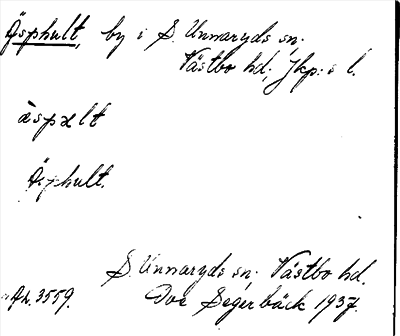 Äsphult, by i S. Unnaryds sn.
Västbo hd. Jkp:s l.
äspält
Äsphult.
S. Unnaryds sn. Västbo hd.
3559. Segerbäck 1937.